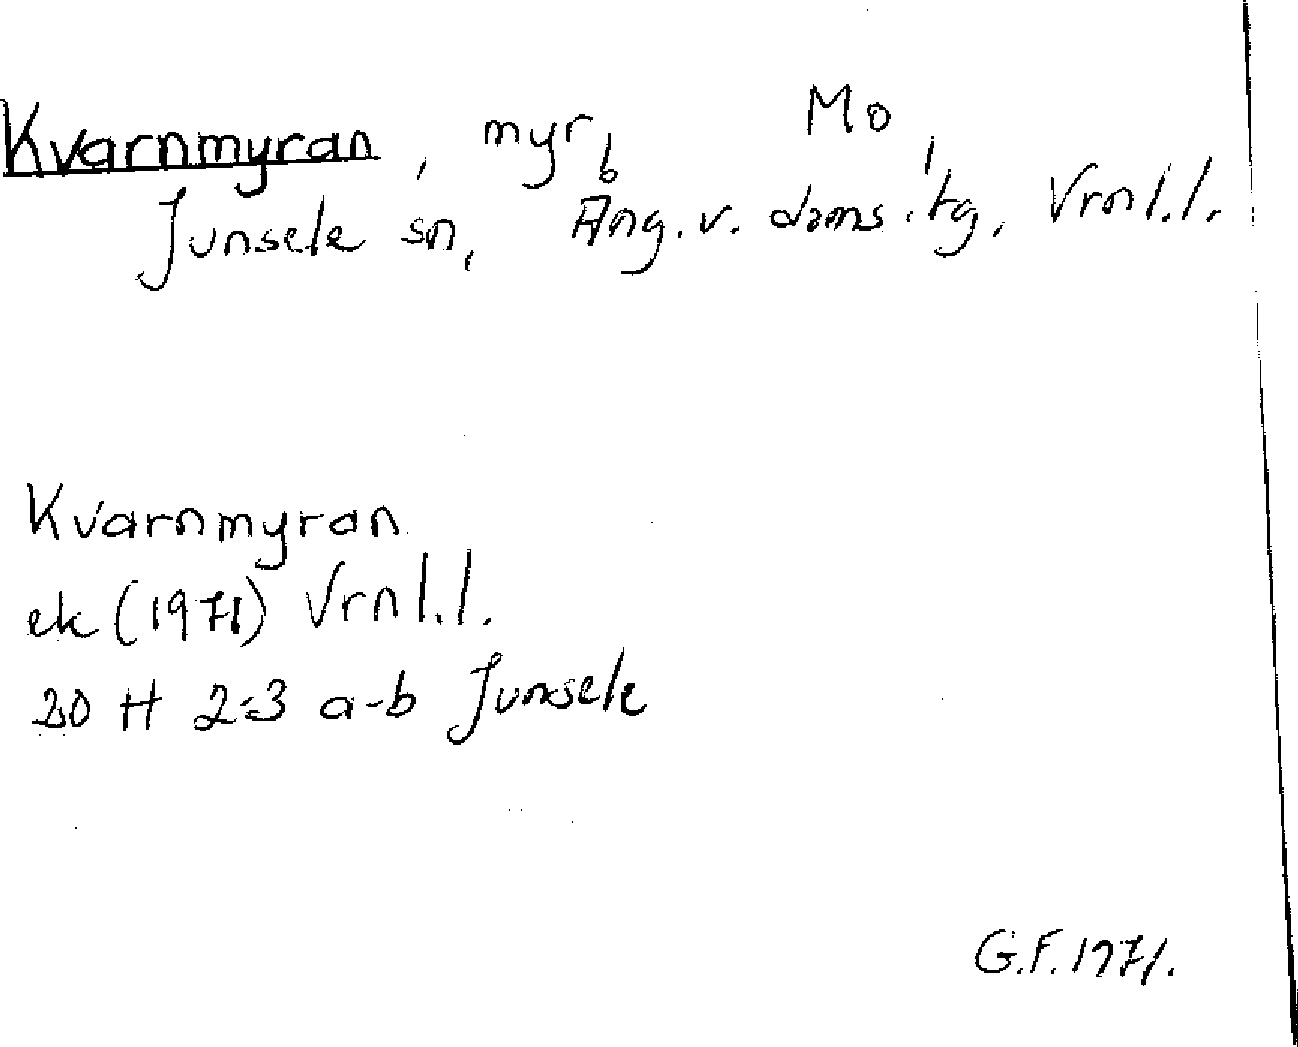 Kvarnmyran, myr, Mo,
Junsele sn, Ång. v. doms.tg, Vrnl.l.
Kvarnmyran
ek (1971) Vrnl.l.
20 H 2-3 a-b Junsele
G.F. 1971.